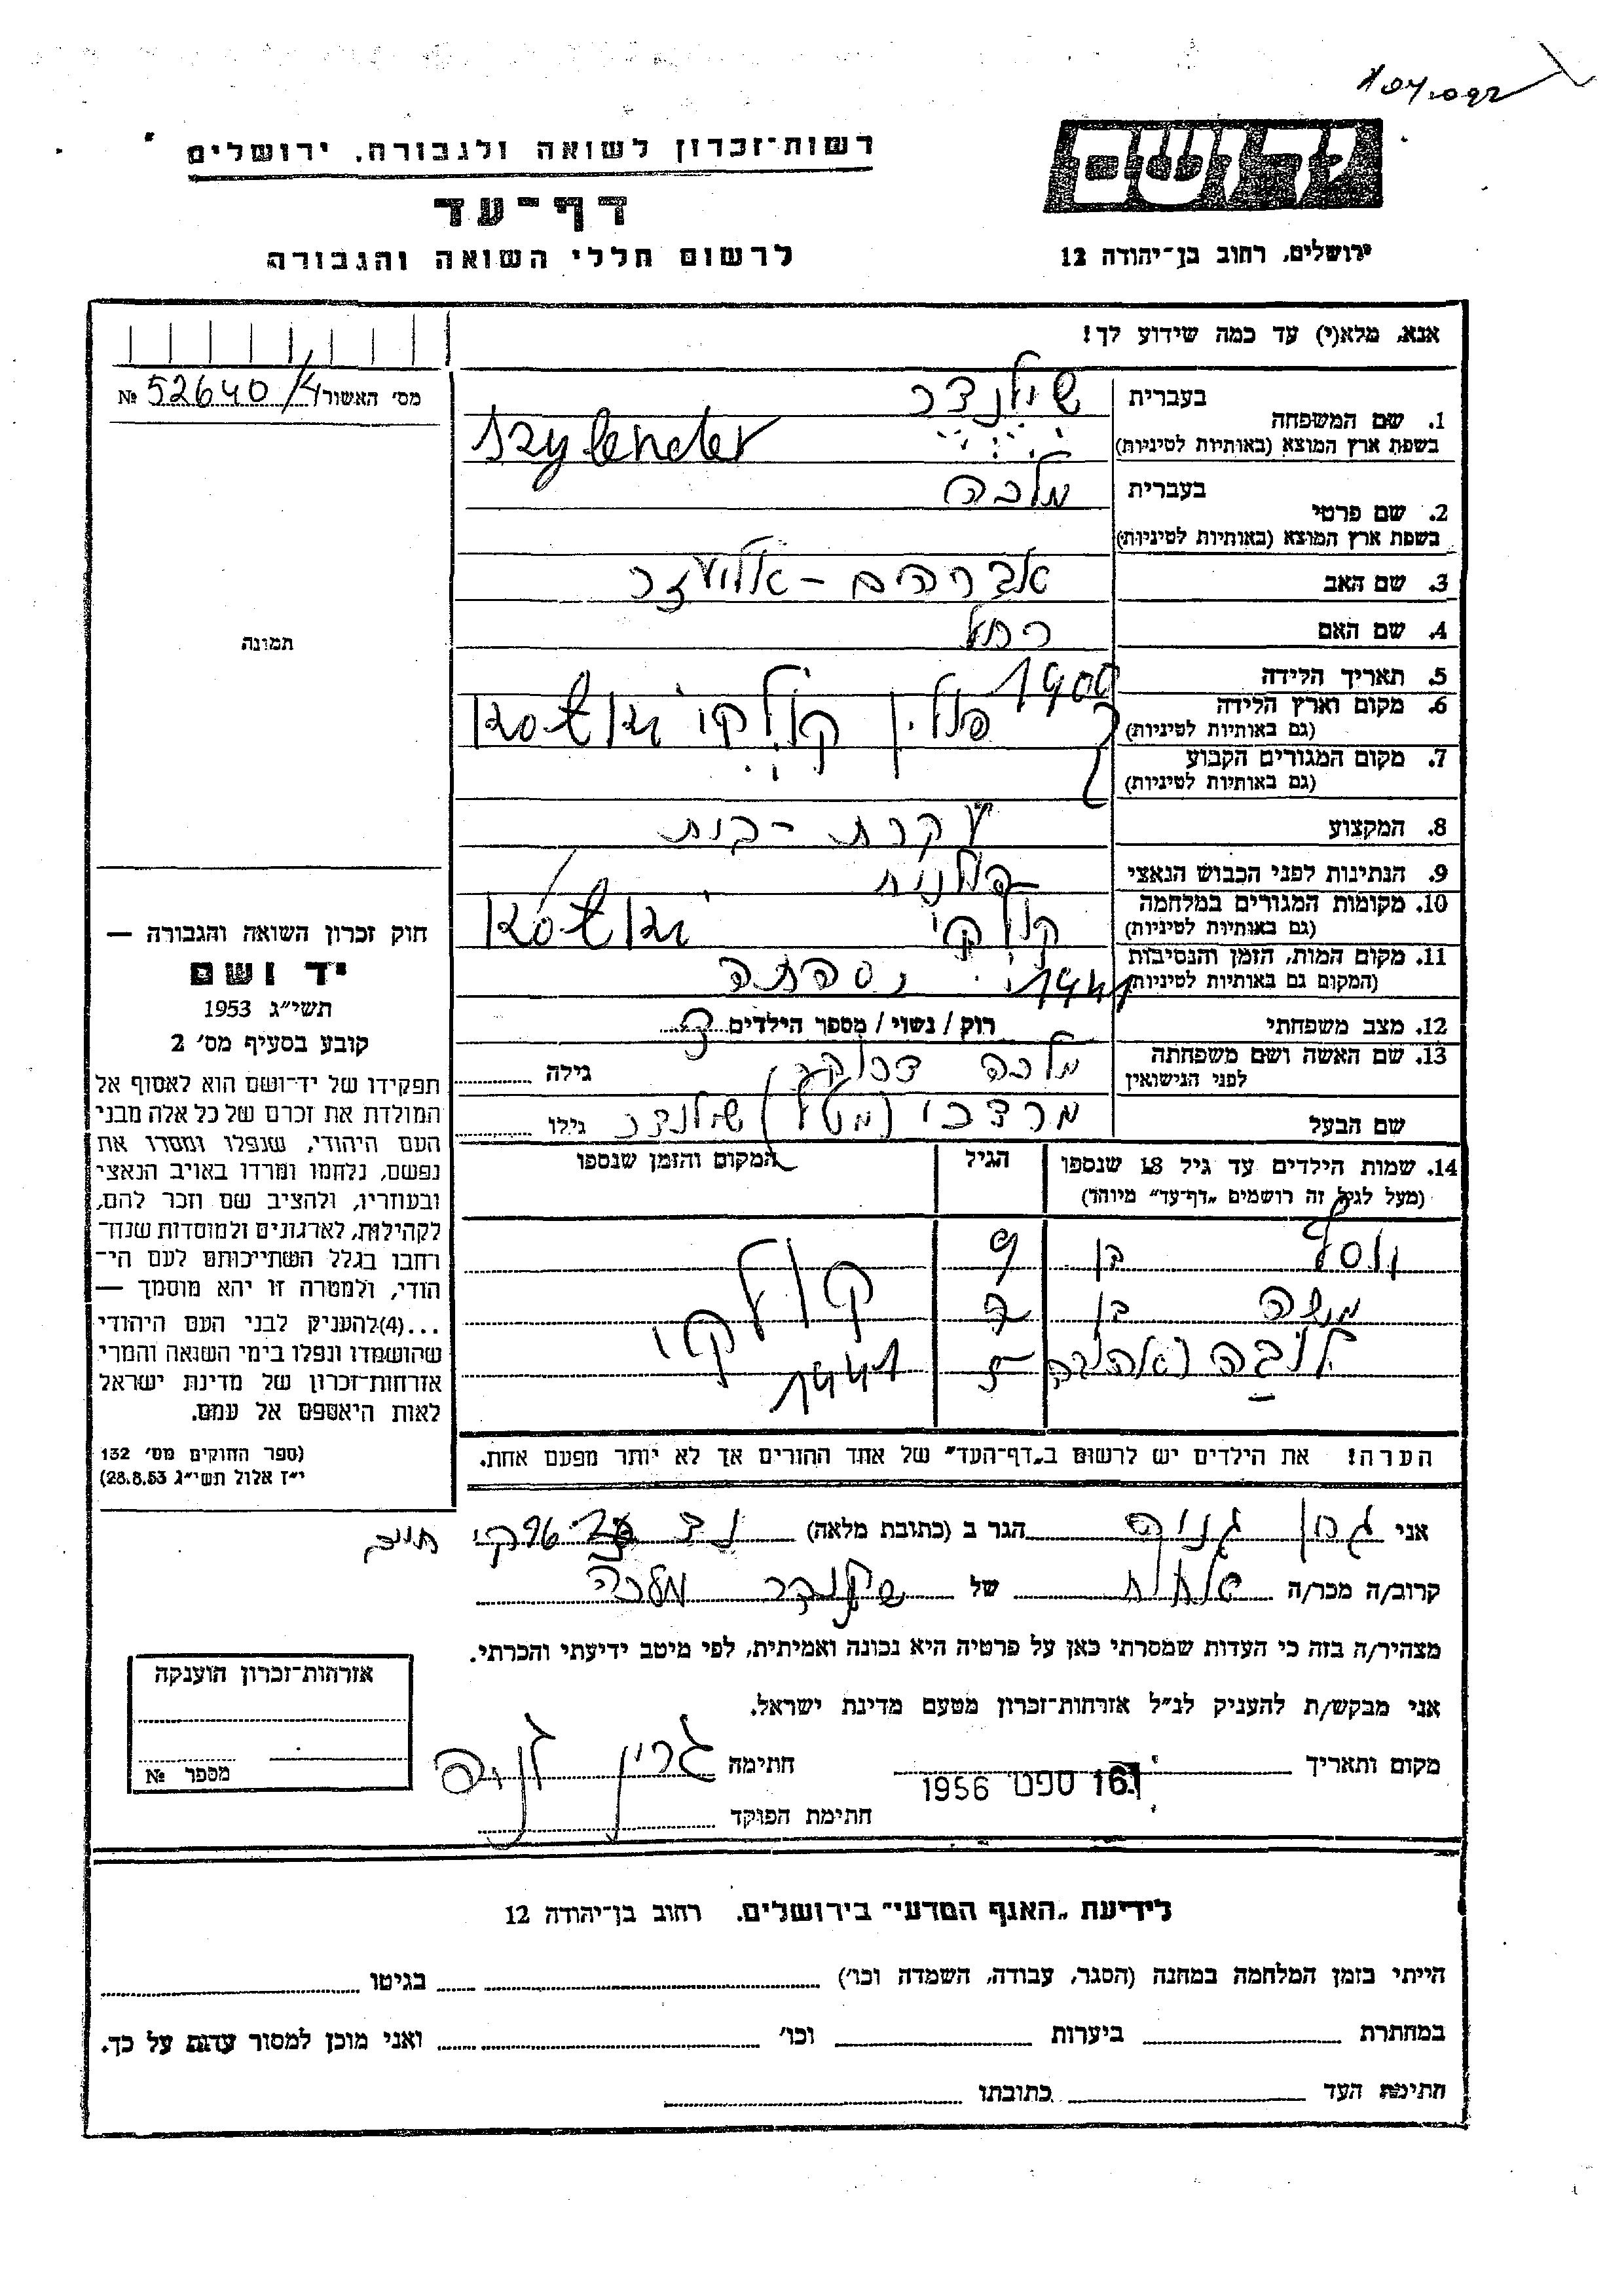 רשות־זכרון לשואה ולגבורה, ירושלים
יד ושם
דף־עד
לרשום חללי השואה והגבורה
ירושלים, רחוב בן־יהודה 12
אנא, מלא(י) עד כמה שידוע לך!
מס׳ האשור 52640/4 №
1. שם המשפחה בעברית שילנדר
בשפת ארץ המוצא (באותיות לטיניות) Szylender
2. שם פרטי בעברית מלכה
בשפת ארץ המוצא (באותיות לטיניות)
3. שם האב אברהם - אליעזר
4. שם האם רחל
5. תאריך הלידה 1900
6. מקום וארץ הלידה פולין
(גם באותיות לטיניות)
7. מקום המגורים הקבוע
(גם באותיות לטיניות)
8. המקצוע עקרת - בית
9. הנתינות לפני הכבוש הנאצי פולנית
10. מקומות המגורים במלחמה
(גם באותיות לטיניות)
11. מקום המות, הזמן והנסיבות 1941 נספתה
(המקום גם באותיות לטיניות)
12. מצב משפחתי רוק / נשוי / מספר הילדים 3
13. שם האשה ושם משפחתה מלכה גילה
לפני הנישואין
שם הבעל מרדכי שילנדר גילו
14. שמות הילדים עד גיל 18 שנספו הגיל המקום והזמן שנספו
(מעל לגיל זה רושמים „דף־עד״ מיוחד)
יוסף בן 9
משה בן 7
ליבה 5 1941
הערה! את הילדים יש לרשום ב„דף־העד״ של אחד ההורים אך לא יותר מפעם אחת.
תמונה
חוק זכרון השואה והגבורה —
יד ושם
תשי״ג 1953
קובע בסעיף מס׳ 2
תפקידו של יד־ושם הוא לאסוף אל
המולדת את זכרם של כל אלה מבני
העם היהודי, שנפלו ומסרו את
נפשם, נלחמו ומרדו באויב הנאצי
ובעוזריו, ולהציב שם וזכר להם,
לקהילות, לארגונים ולמוסדות שנח־
רחבו בגלל השתייכותם לעם הי־
הודי, ולמטרה זו יהא מוסמך —
...(4)להעניק לבני העם היהודי
שהושמדו ונפלו בימי השואה והמרי
אזרחות־זכרון של מדינת ישראל
לאות היאספם אל עמם.
(ספר החוקים מס׳ 132
י״ז אלול תשי״ג 28.8.53)
אני גרין הגר ב (כתובת מלאה)
קרוב/ה מכר/ה של שילנדר מלכה
מצהיר/ה בזה כי העדות שמסרתי כאן על פרטיה היא נכונה ואמיתית, לפי מיטב ידיעתי והכרתי.
אני מבקש/ת להעניק לנ״ל אזרחות־זכרון מטעם מדינת ישראל.
מקום ותאריך 16 ספט 1956 חתימה גרין
חתימת הפוקד
אזרחות־זכרון הוענקה
מספר №
לידיעת „האגף המדעי״ בירושלים. רחוב בן־יהודה 12
הייתי בזמן המלחמה במחנה (הסגר, עבודה, השמדה וכו׳) בגיטו
במחתרת ביערות וכו׳ ואני מוכן למסור עדות על כך.
חתימת העד כתובתו